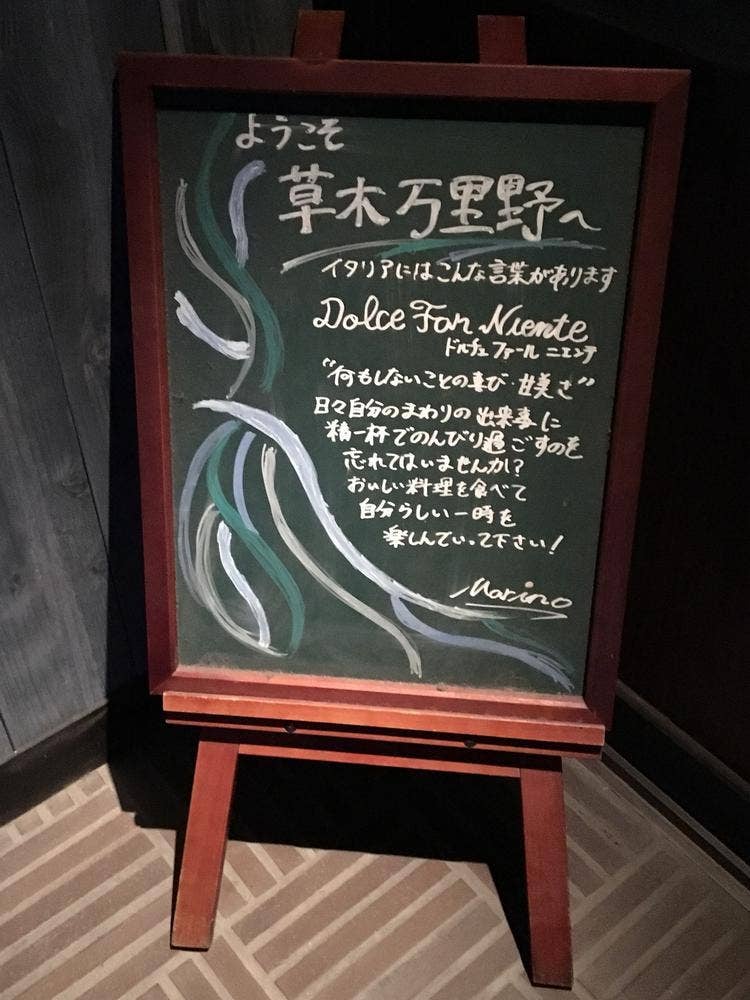 ようこそ
草木万里野へ
イタリアにはこんな言葉があります
Dolce Far Niente
ドルチェ ファール ニエンテ
"何もしないことの喜び・甘美さ"
日々自分のまわりの出来事に
精一杯でのんびり過ごすのを
忘れてはいませんか?
おいしい料理を食べて
自分らしい一時を
楽しんでいって下さい!
Marino